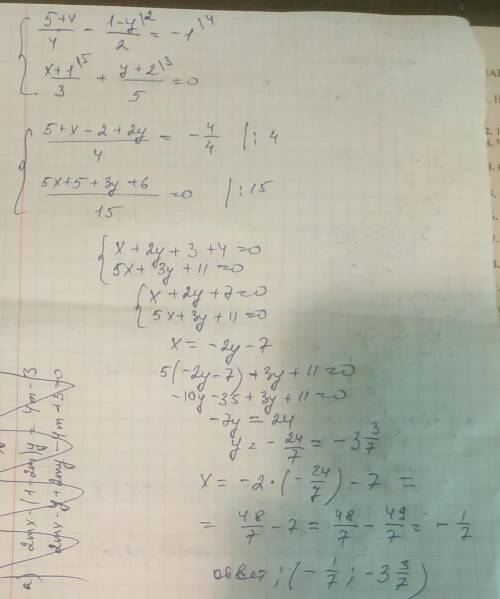 (5+x)/4 - (1-y)/2 \2 = -1 \4
(x+1)/3 \5 + (y+2)/5 \3 = 0
(5+x-2+2y)/4 = -4/4 |:4
(5x+5+3y+6)/15 = 0 |:15
x+2y+3+4=0
5x+3y+11=0
x+2y+7=0
5x+3y+11=0
x = -2y-7
5(-2y-7)+3y+11=0
-10y-35+3y+11=0
-7y=24
y = -24/7 = -3 3/7
x = -2·(-24/7) - 7 =
= 48/7 - 7 = 48/7 - 49/7 = -1/7
ответ; (-1/7; -3 3/7)
a) 2mx-(1-2m)y = 4m-3
2mx-y+2my-4m+3=0